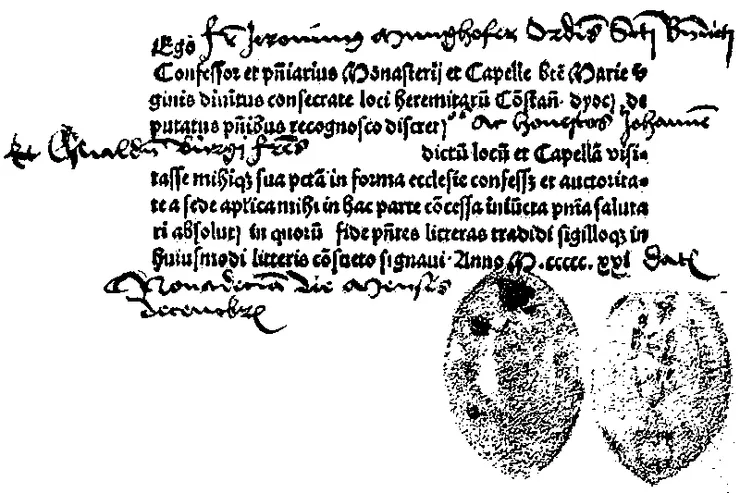 Ego fr̄ Jeronimus Munghofer Ordīs Scti Bn̄dicti
Confessor et pn̄iarius Monasterij et Capelle btē Marie v
ginis diuitus consecrate loci heremitarū Cōstan̄. dyoc̄. de
putatus pn̄ibus recognosco discret os ac honestos Johannē
et Oswaldū Bürgi fr̄es dictū locū et Capellā visi-
tasse mihiqꝫ sua pctā in forma ecclesie confessꝫ et auctorita-
te a sede aplica mihi in hac parte cōcessa iniūcta pn̄ia saluta
ri absoluj in quorū fide pn̄tes litteras tradidi sigilloqꝫ in
huiusmodi litteris cōsueto signaui. Anno M.ccccc.xxi dat
Nonadecima die Mensis
decembr